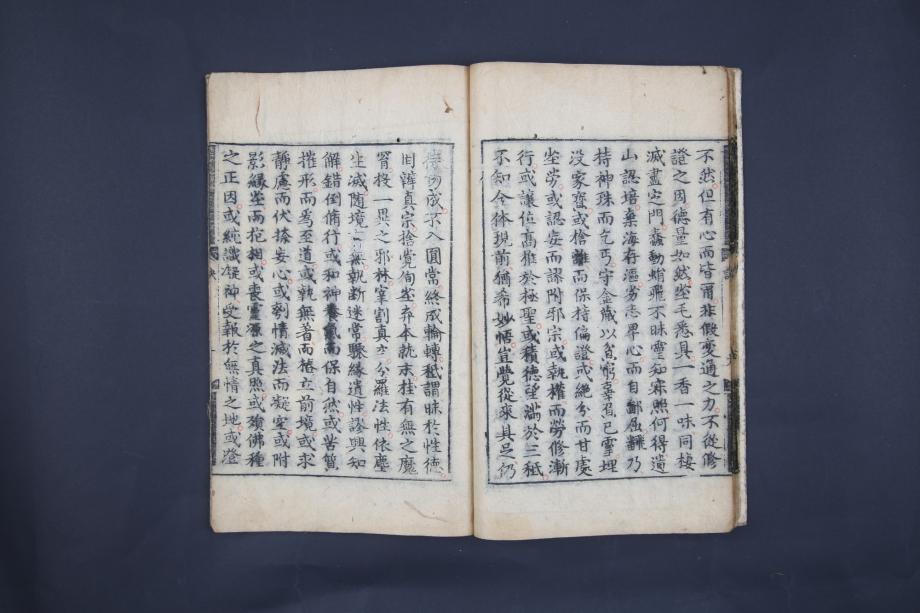 不然但有心而皆爾非假變通之力不從修
證之因德量如然尘毛悉具一香一味同棲
滅盡定之門蠢動蛸飛不昧灵知寂照何得遺
山認培棄海存漚劣志卑心而自鄙屈飜乃
持神珠而乞丐守金藏以貧窮辜負己灵埋
没家寶或捨離而保持偏證或絶分而甘處
尘劳或認妄而謬附邪宗或執權而勞修漸
行或讓位高推於極聖或積德望滿於三秪
不知全体現前猶希妙悟豈覺從來具足仍
待功成不入圓常終成輪轉秖謂昧於性德
罔辯真宗捨覺徇尘弃本就末挂有無之魔
罥投一異之邪林宰割真空分羅法性依塵
生滅随境有無執断迷常驟緣遺性謬興知
解錯倒脩行或和神養氣而保自然或苦質
摧形而為至道或執無著而樁立前境或求
靜慮而伏捺妄心或刳情滅法而凝空或附
影緣尘而抱相或喪靈源之真照或殞佛種
之正因或絶識凝神受報於無情之地或澄
訣